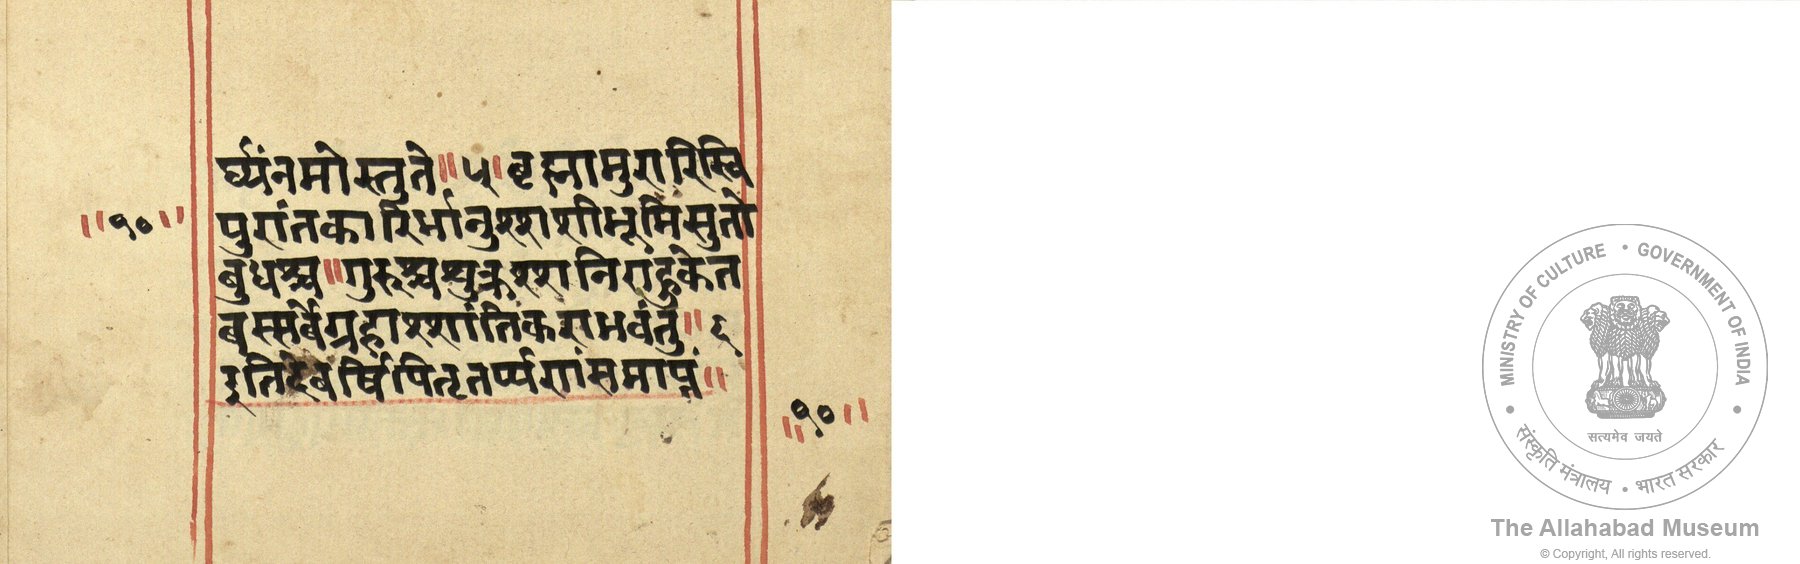 र्घ्यंनमोस्तुते॥५॥बृह्मामुरारिस्त्रि
॥१०॥
पुरांतकारिर्भानुश्शशीभूमिसुतो
बुधश्च॥गुरुश्चशुक्रश्शनिरांहुकेत
बस्सर्बैग्रहाश्शांतिंकराभवंतु॥६
इतिदेबर्षिपितृतर्प्पणंसमाप्तं॥
॥१०॥
MINISTRY OF CULTURE • GOVERNMENT OF INDIA
सत्यमेव जयते
• संस्कृति मंत्रालय • भारत सरकार •
The Allahabad Museum
© Copyright, All rights reserved.